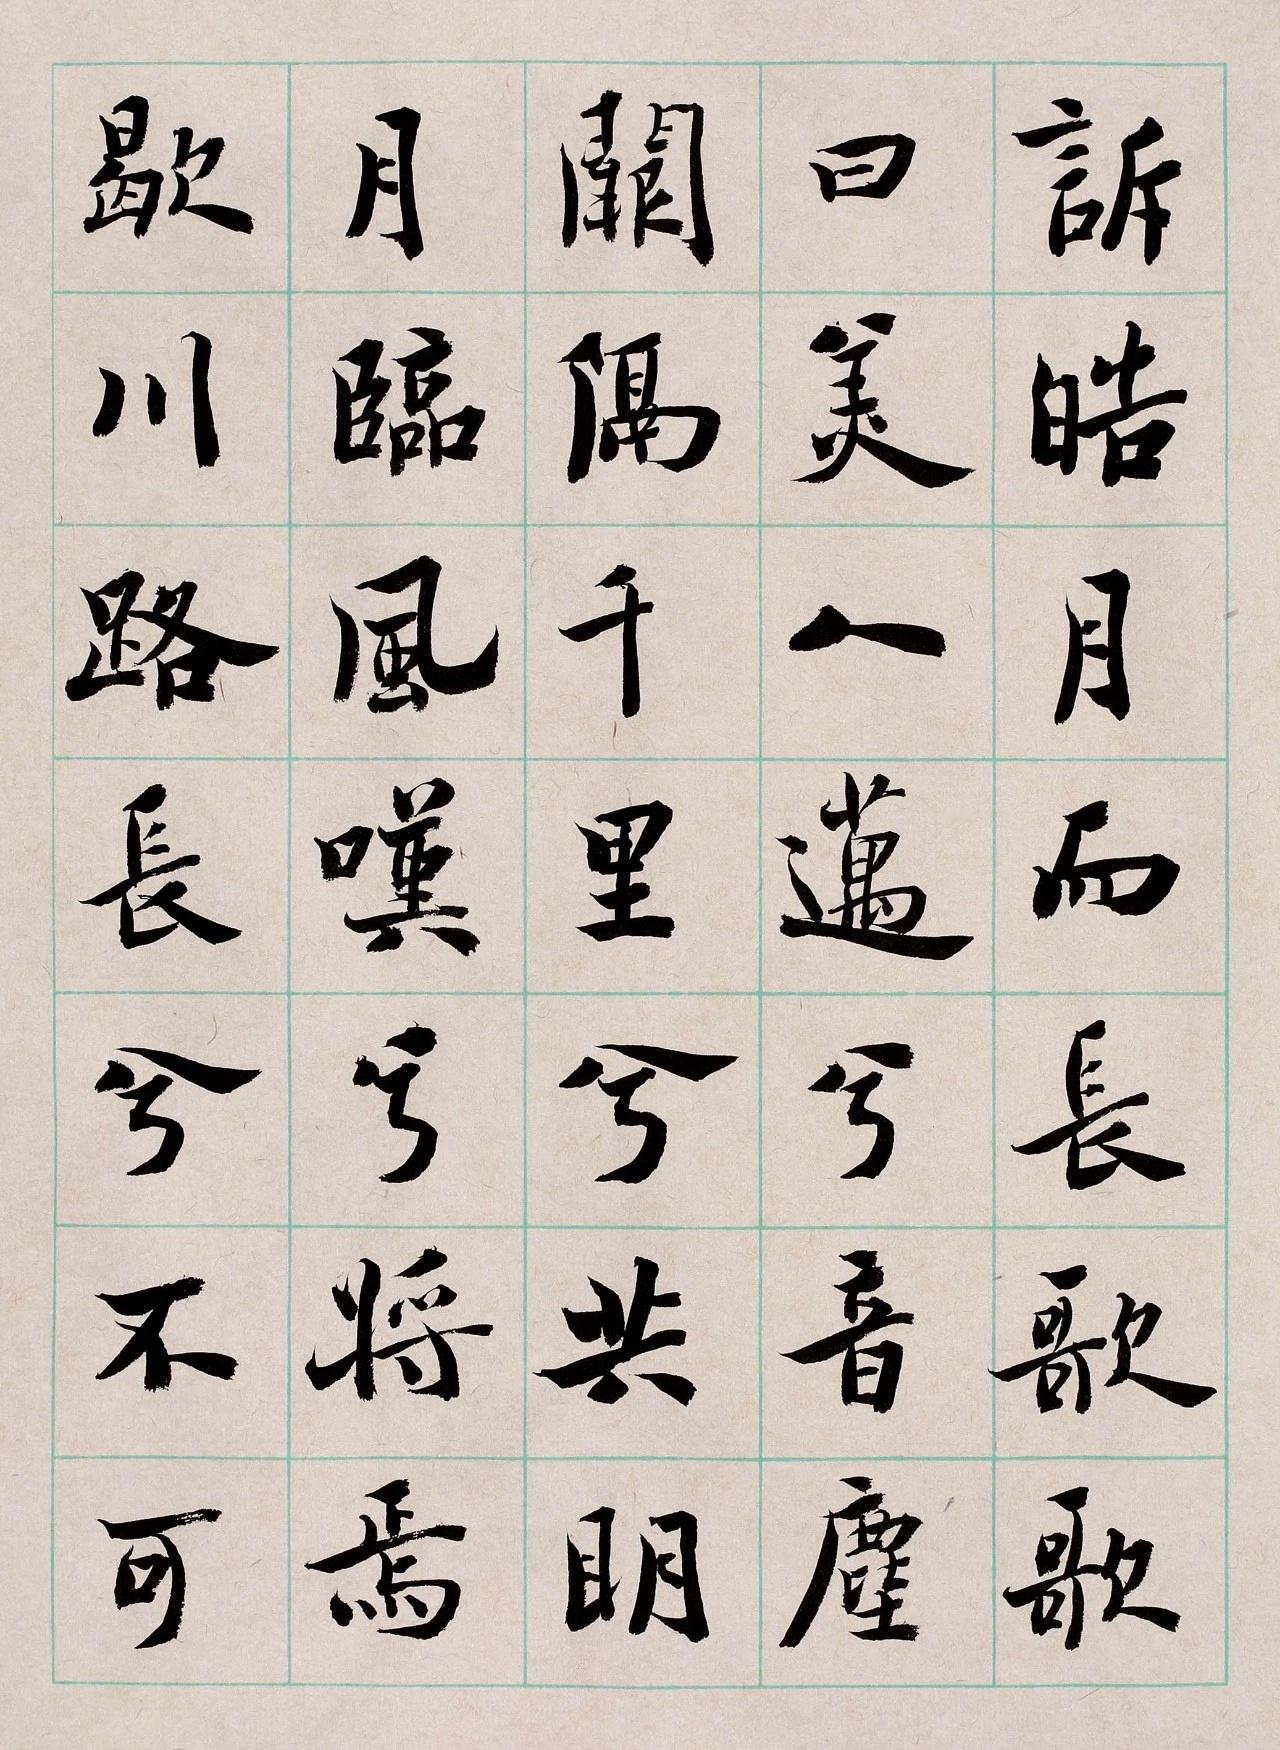 訴皓月而長歌歌
曰美人邁兮音塵
闕隔千里兮共明
月臨風嘆兮將焉
歇川路長兮不可